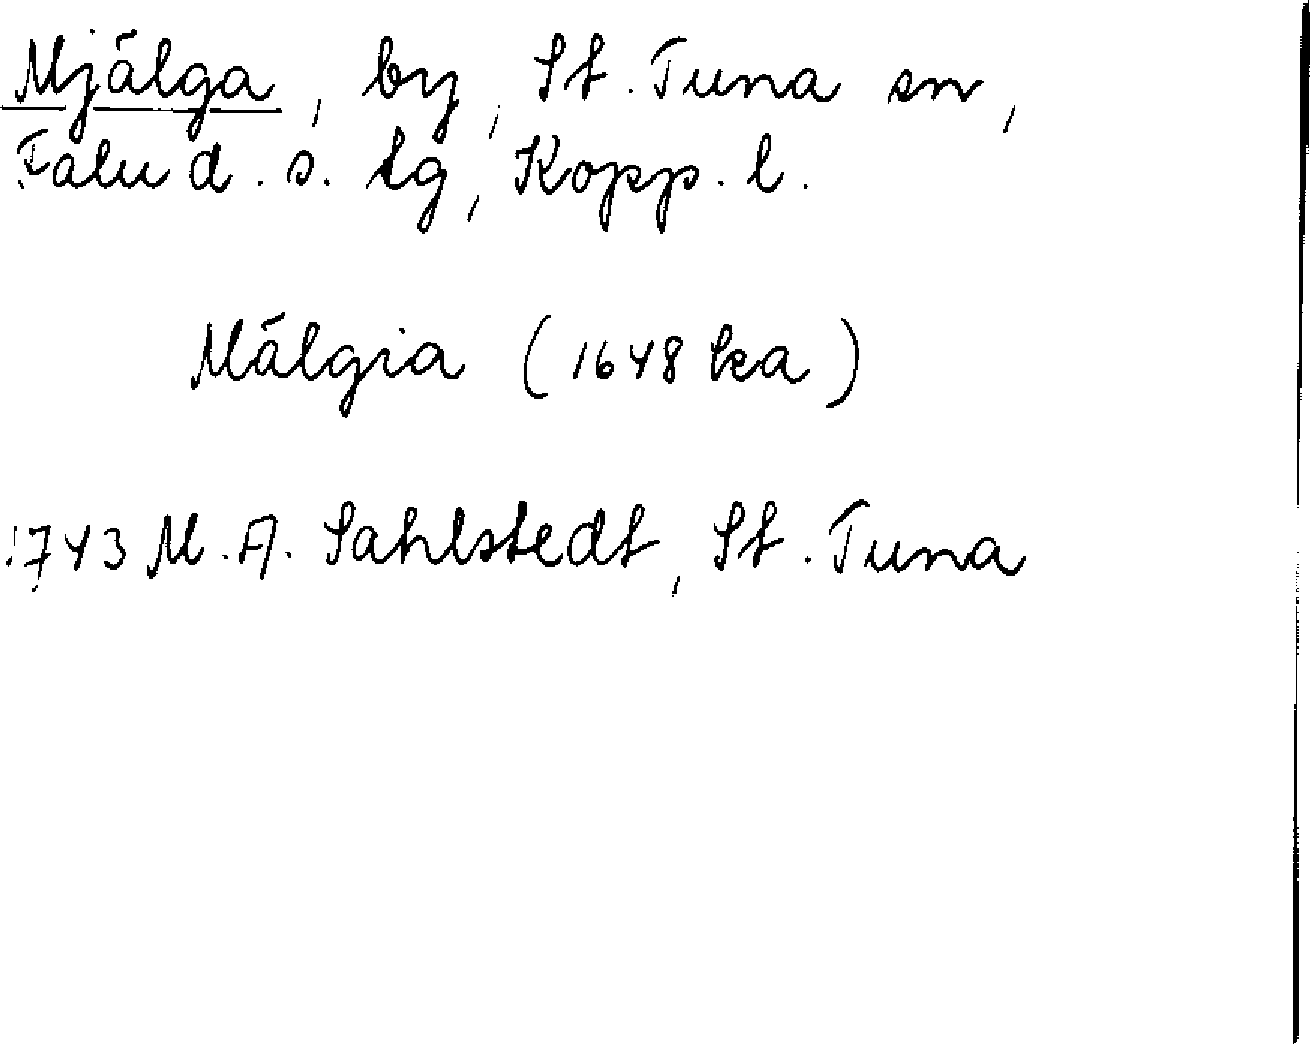 Mjälga, by, St. Tuna sn,
Falu d. s. tg, Kopp. l.
Mälgia (1648 ka)
1743 M. A. Sahlstedt, St. Tuna